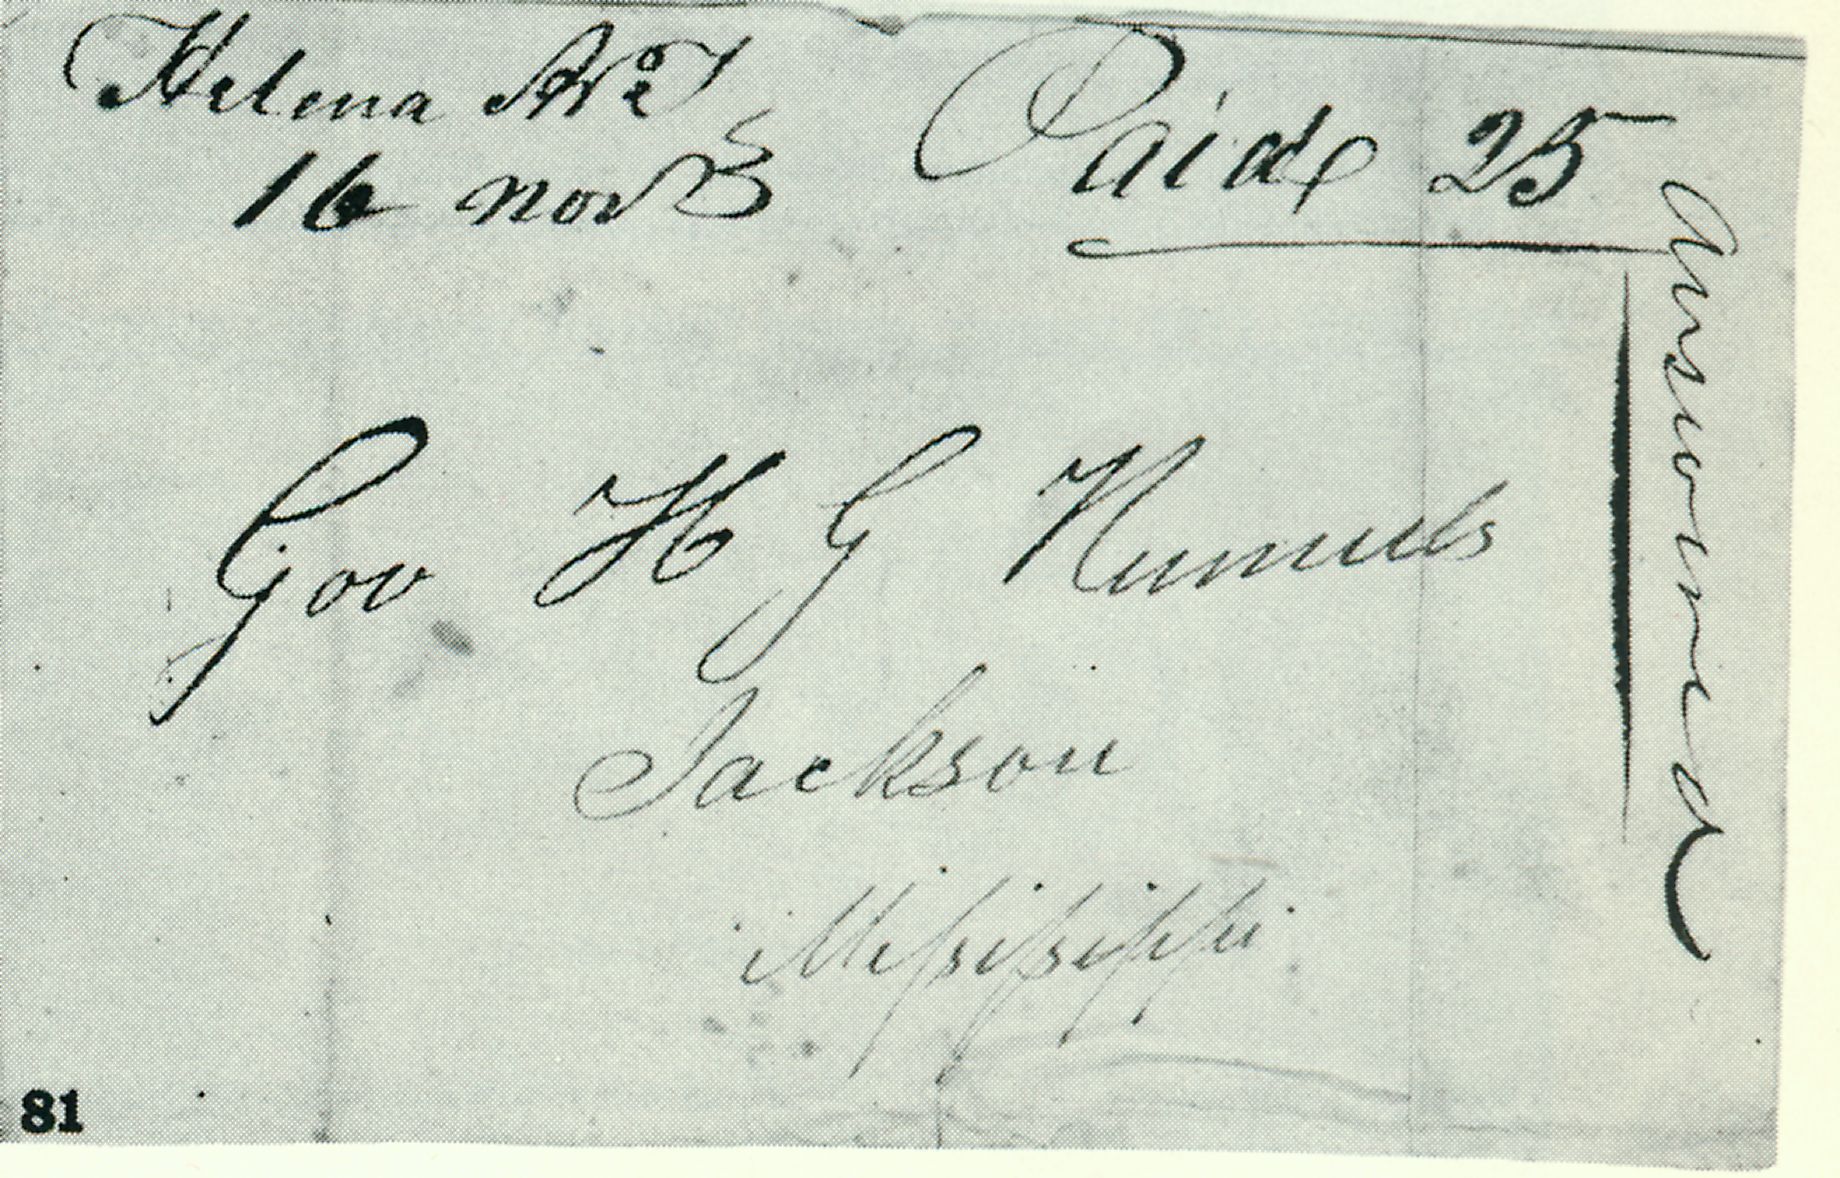 Helena Ark T
16 Nov 3
Paid 25
Gov H G Runnels
Jackson
Mississippi
Answered
81